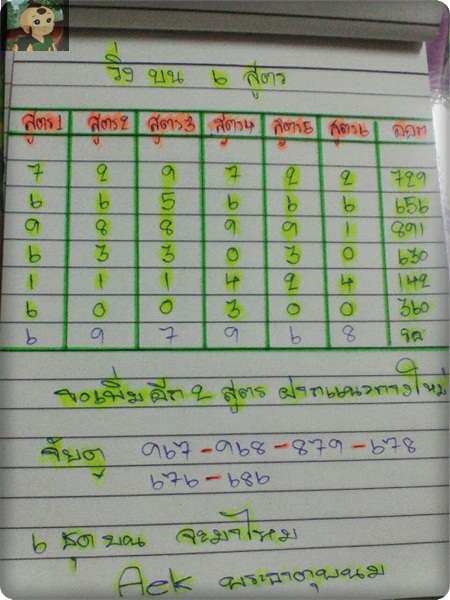 วิ่ง บน ๖ สูตร
สูตร1 สูตร2 สูตร3 สูตร4 สูตร5 สูตร6 ออก
7 2 9 7 2 2 729
6 6 5 6 6 6 656
9 8 8 9 9 1 891
6 3 3 0 3 0 630
1 1 1 4 2 4 142
6 0 0 3 0 0 360
6 9 7 9 6 8 รอ
ขอเพิ่มอีก 2 สูตร ฝากแนวทางใหม่
จับคู่ 967-968-879-678
676-686
6 ชุด บน จะมาไหม
Aek พระธาตุพนม